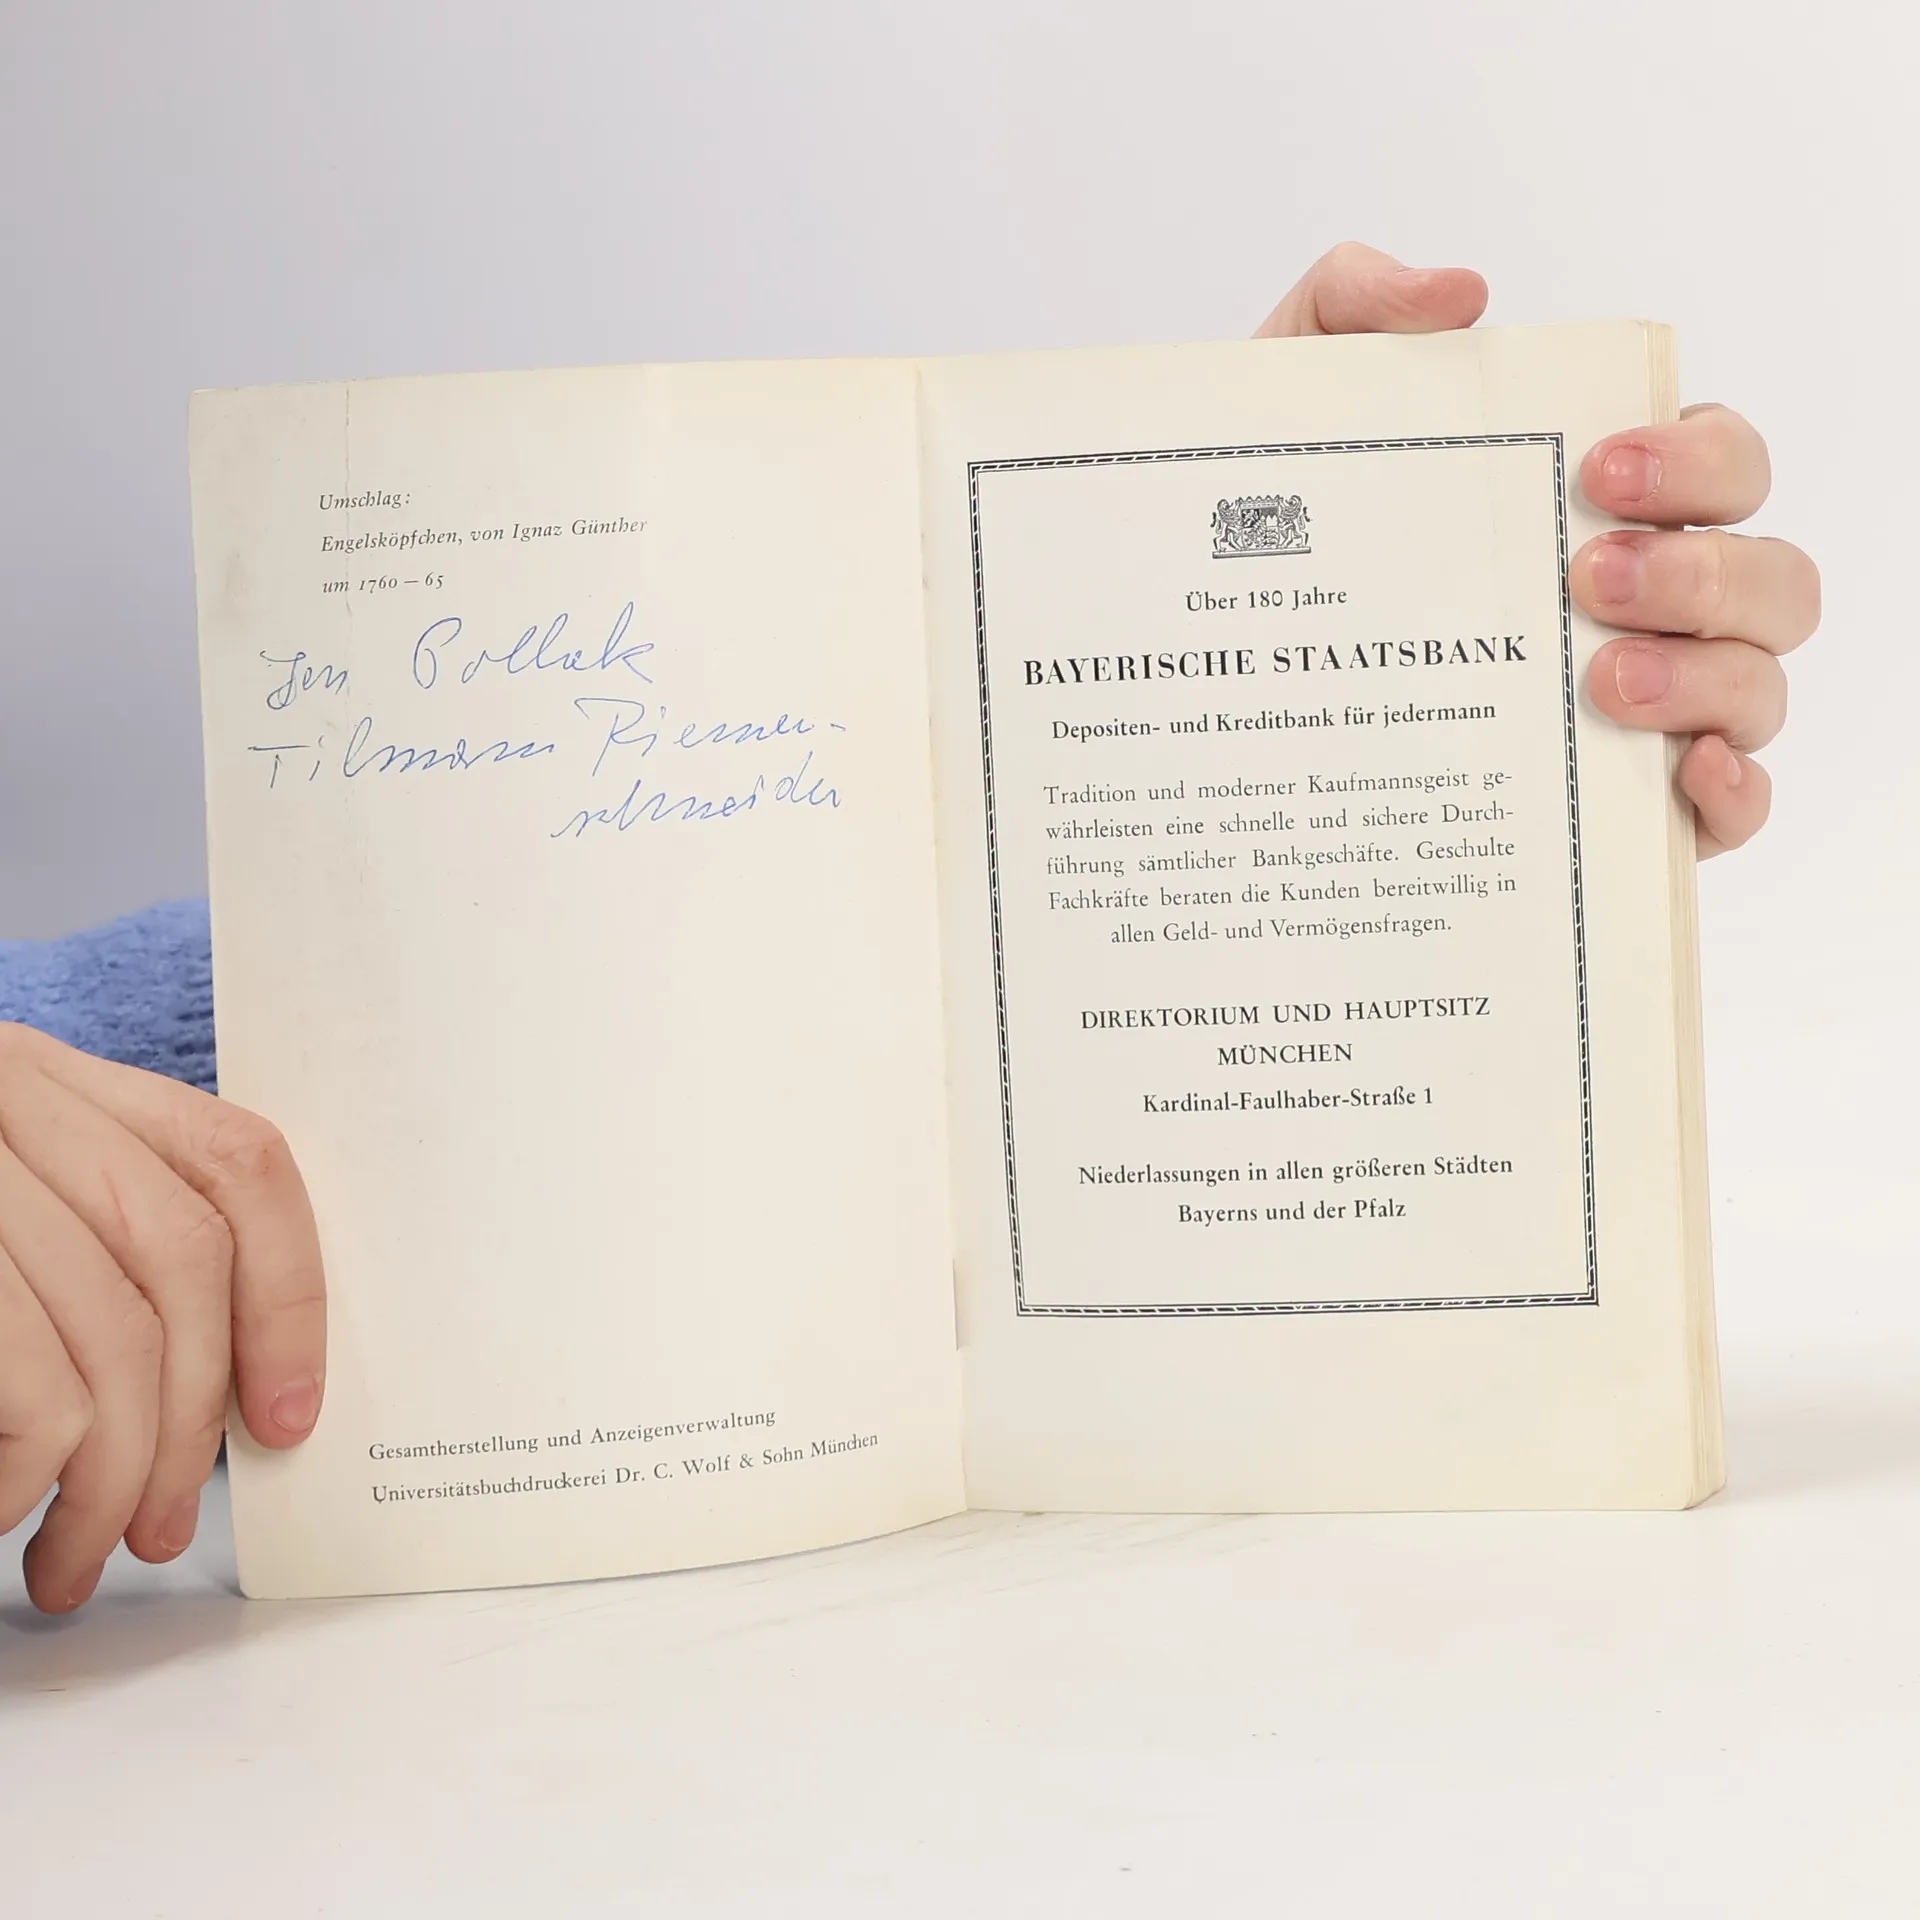 Umschlag:
Engelsköpfchen, von Ignaz Günther
um 1760 — 65
Pollak
Tilmann Riemen-
schneider
Gesamtherstellung und Anzeigenverwaltung
Universitätsbuchdruckerei Dr. C. Wolf & Sohn München
Über 180 Jahre
BAYERISCHE STAATSBANK
Depositen- und Kreditbank für jedermann
Tradition und moderner Kaufmannsgeist ge-
währleisten eine schnelle und sichere Durch-
führung sämtlicher Bankgeschäfte. Geschulte
Fachkräfte beraten die Kunden bereitwillig in
allen Geld- und Vermögensfragen.
DIREKTORIUM UND HAUPTSITZ
MÜNCHEN
Kardinal-Faulhaber-Straße 1
Niederlassungen in allen größeren Städten
Bayerns und der Pfalz